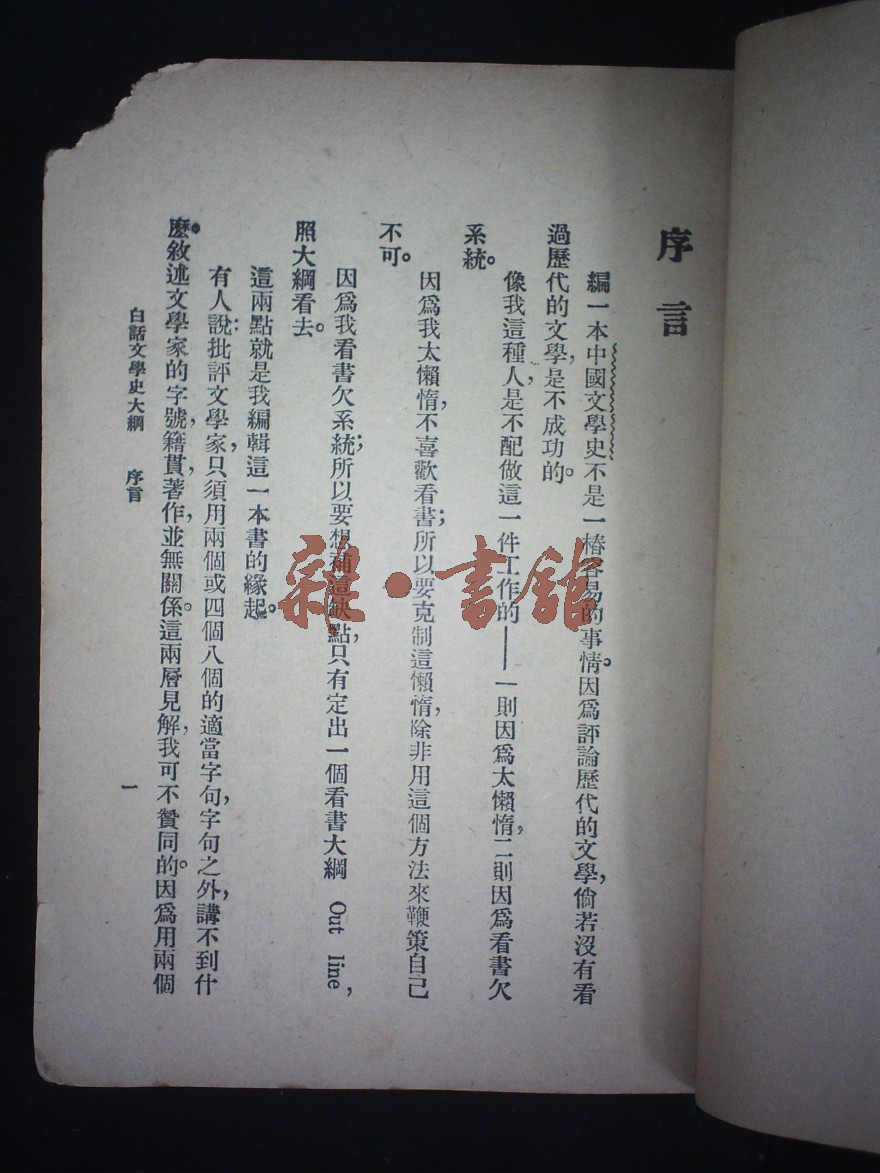 序言
編一本中國文學史不是一樁容易的事情。因爲評論歷代的文學，倘若沒有看
過歷代的文學，是不成功的。
像我這種人，是不配做這一件工作的——一則因爲太懶惰，二則因爲看書欠
系統。
因爲我太懶惰，不喜歡看書；所以要克制這懶惰，除非用這個方法來鞭策自己
不可。
因爲我看書欠系統；所以要想補這缺點，只有定出一個看書大綱 Out line，
照大綱看去。
這兩點就是我編輯這一本書的緣起。
有人說：批評文學家，只須用兩個或四個八個的適當字句，字句之外，講不到什
麼。敘述文學家的字號，籍貫，著作，並無關係。這兩層見解，我可不贊同的。因爲用兩個
白話文學史大綱　序言
一
雜·書館